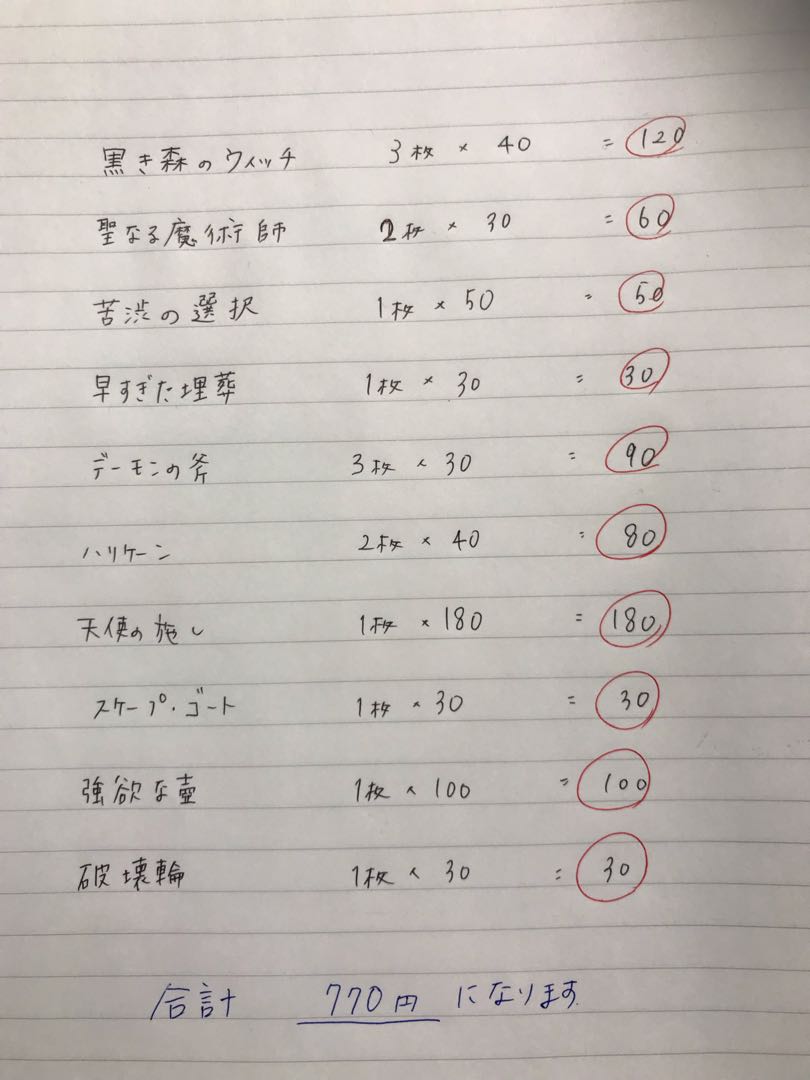 黒き森のウィッチ 3枚 × 40 = 120
聖なる魔術師 2枚 × 30 = 60
苦渋の選択 1枚 × 50 = 50
早すぎた埋葬 1枚 × 30 = 30
デーモンの斧 3枚 × 30 = 90
ハリケーン 2枚 × 40 = 80
天使の施し 1枚 × 180 = 180
スケープ・ゴート 1枚 × 30 = 30
強欲な壺 1枚 × 100 = 100
破壊輪 1枚 × 30 = 30
合計 770円 になります